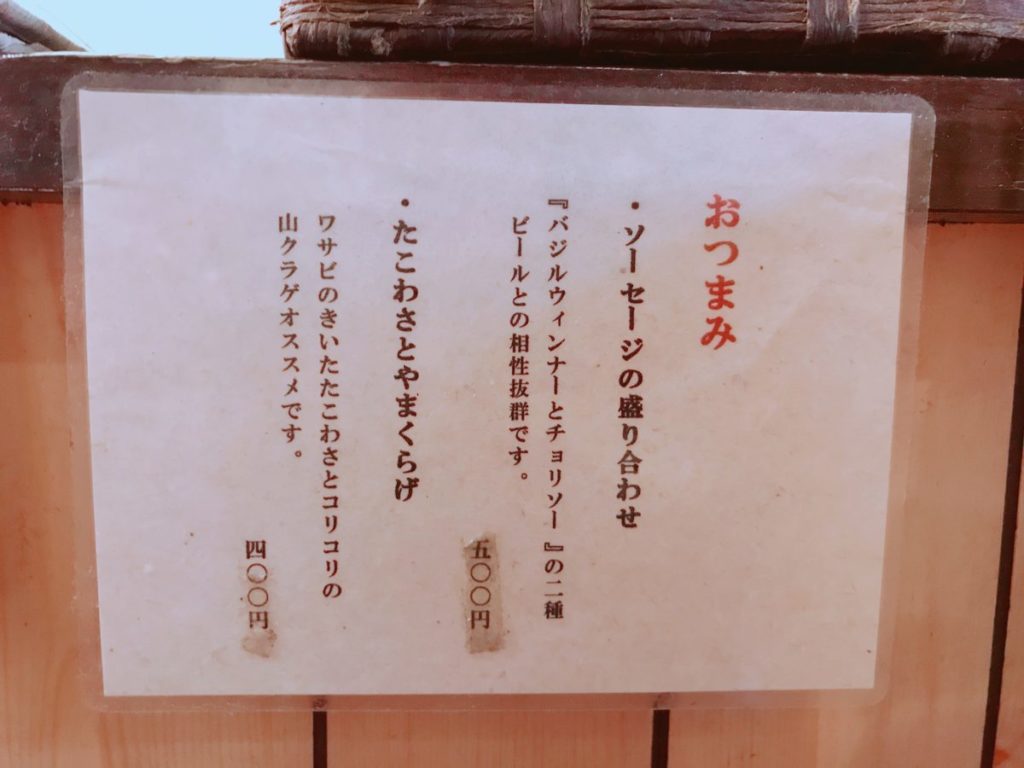 おつまみ
・ソーセージの盛り合わせ
『バジルウィンナーとチョリソー』の二種
ビールとの相性抜群です。
五〇〇円
・たこわさとやまくらげ
ワサビのきいたたこわさとコリコリの
山クラゲオススメです。
四〇〇円